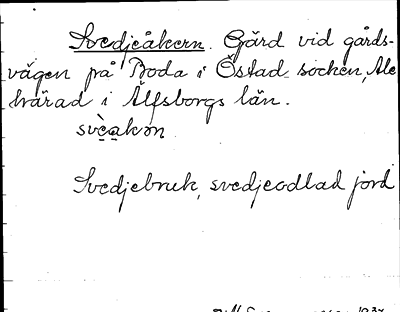 Svedjeåkern. Gärd vid gårds-
vägen på Boda i Östad socken, Ale
härad i Älfsborgs län.
svèakǝn
Svedjebruk, svedjeodlad jord